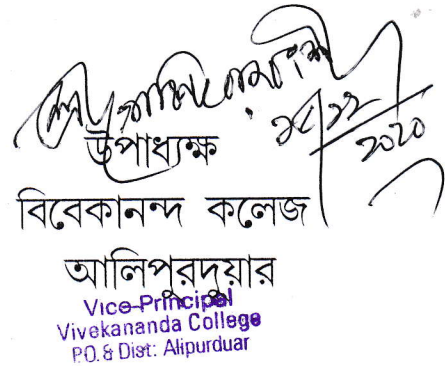 উপাধ্যক্ষ
বিবেকানন্দ কলেজ
আলিপুরদুয়ার
Vice-Principal
Vivekananda College
P.O. & Dist: Alipurduar